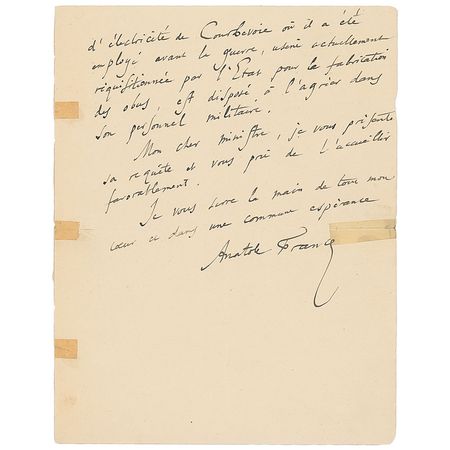 d'électricité de Courbevoie où il a été
employé avant la guerre, usine actuellement
réquisitionnée par l'Etat pour la fabrication
des obus, est disposé à l'agréer dans
son personnel militaire.
Mon cher ministre, je vous présente
sa requête et vous prie de l'accueillir
favorablement.
Je vous serre la main de tout mon
cœur et dans une commune espérance
Anatole France